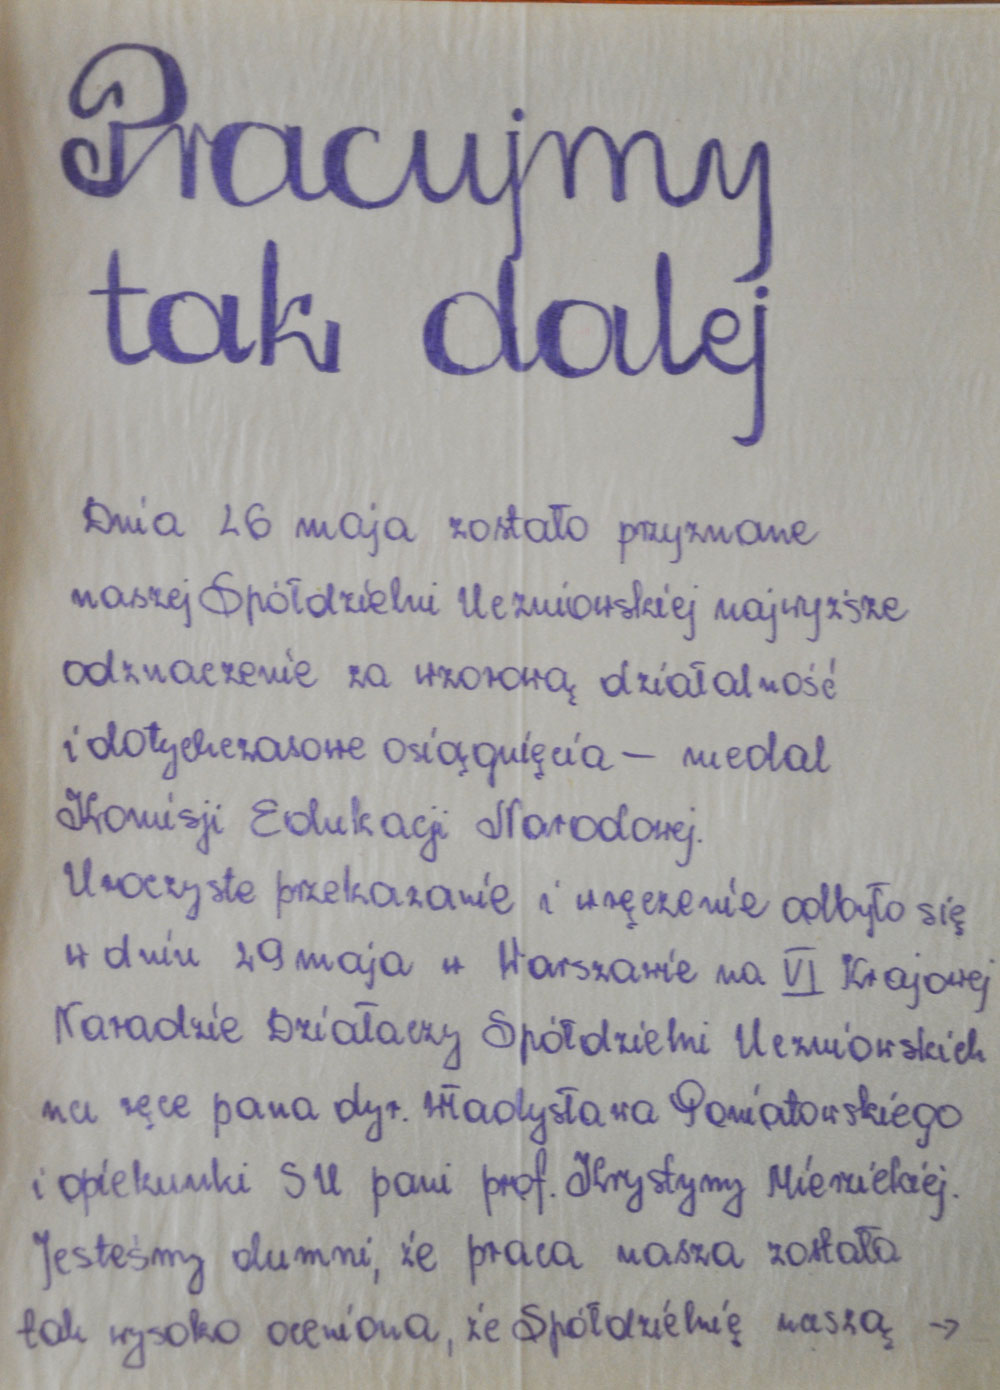 Pracujmy
tak dalej
Dnia 26 maja zostało przyznane
naszej Spółdzielni Uczniowskiej najwyższe
odznaczenie za wzorową działalność
i dotychczasowe osiągnięcia — medal
Komisji Edukacji Narodowej.
Uroczyste przekazanie i wręczenie odbyło się
w dniu 29 maja w Warszawie na VI Krajowej
Naradzie Działaczy Spółdzielni Uczniowskich
na ręce pana dyr. Władysława Poniatowskiego
i opiekunki SU pani prof. Krystyny Mierzickiej.
Jesteśmy dumni, że praca nasza została
tak wysoko oceniona, że Spółdzielnię naszą →